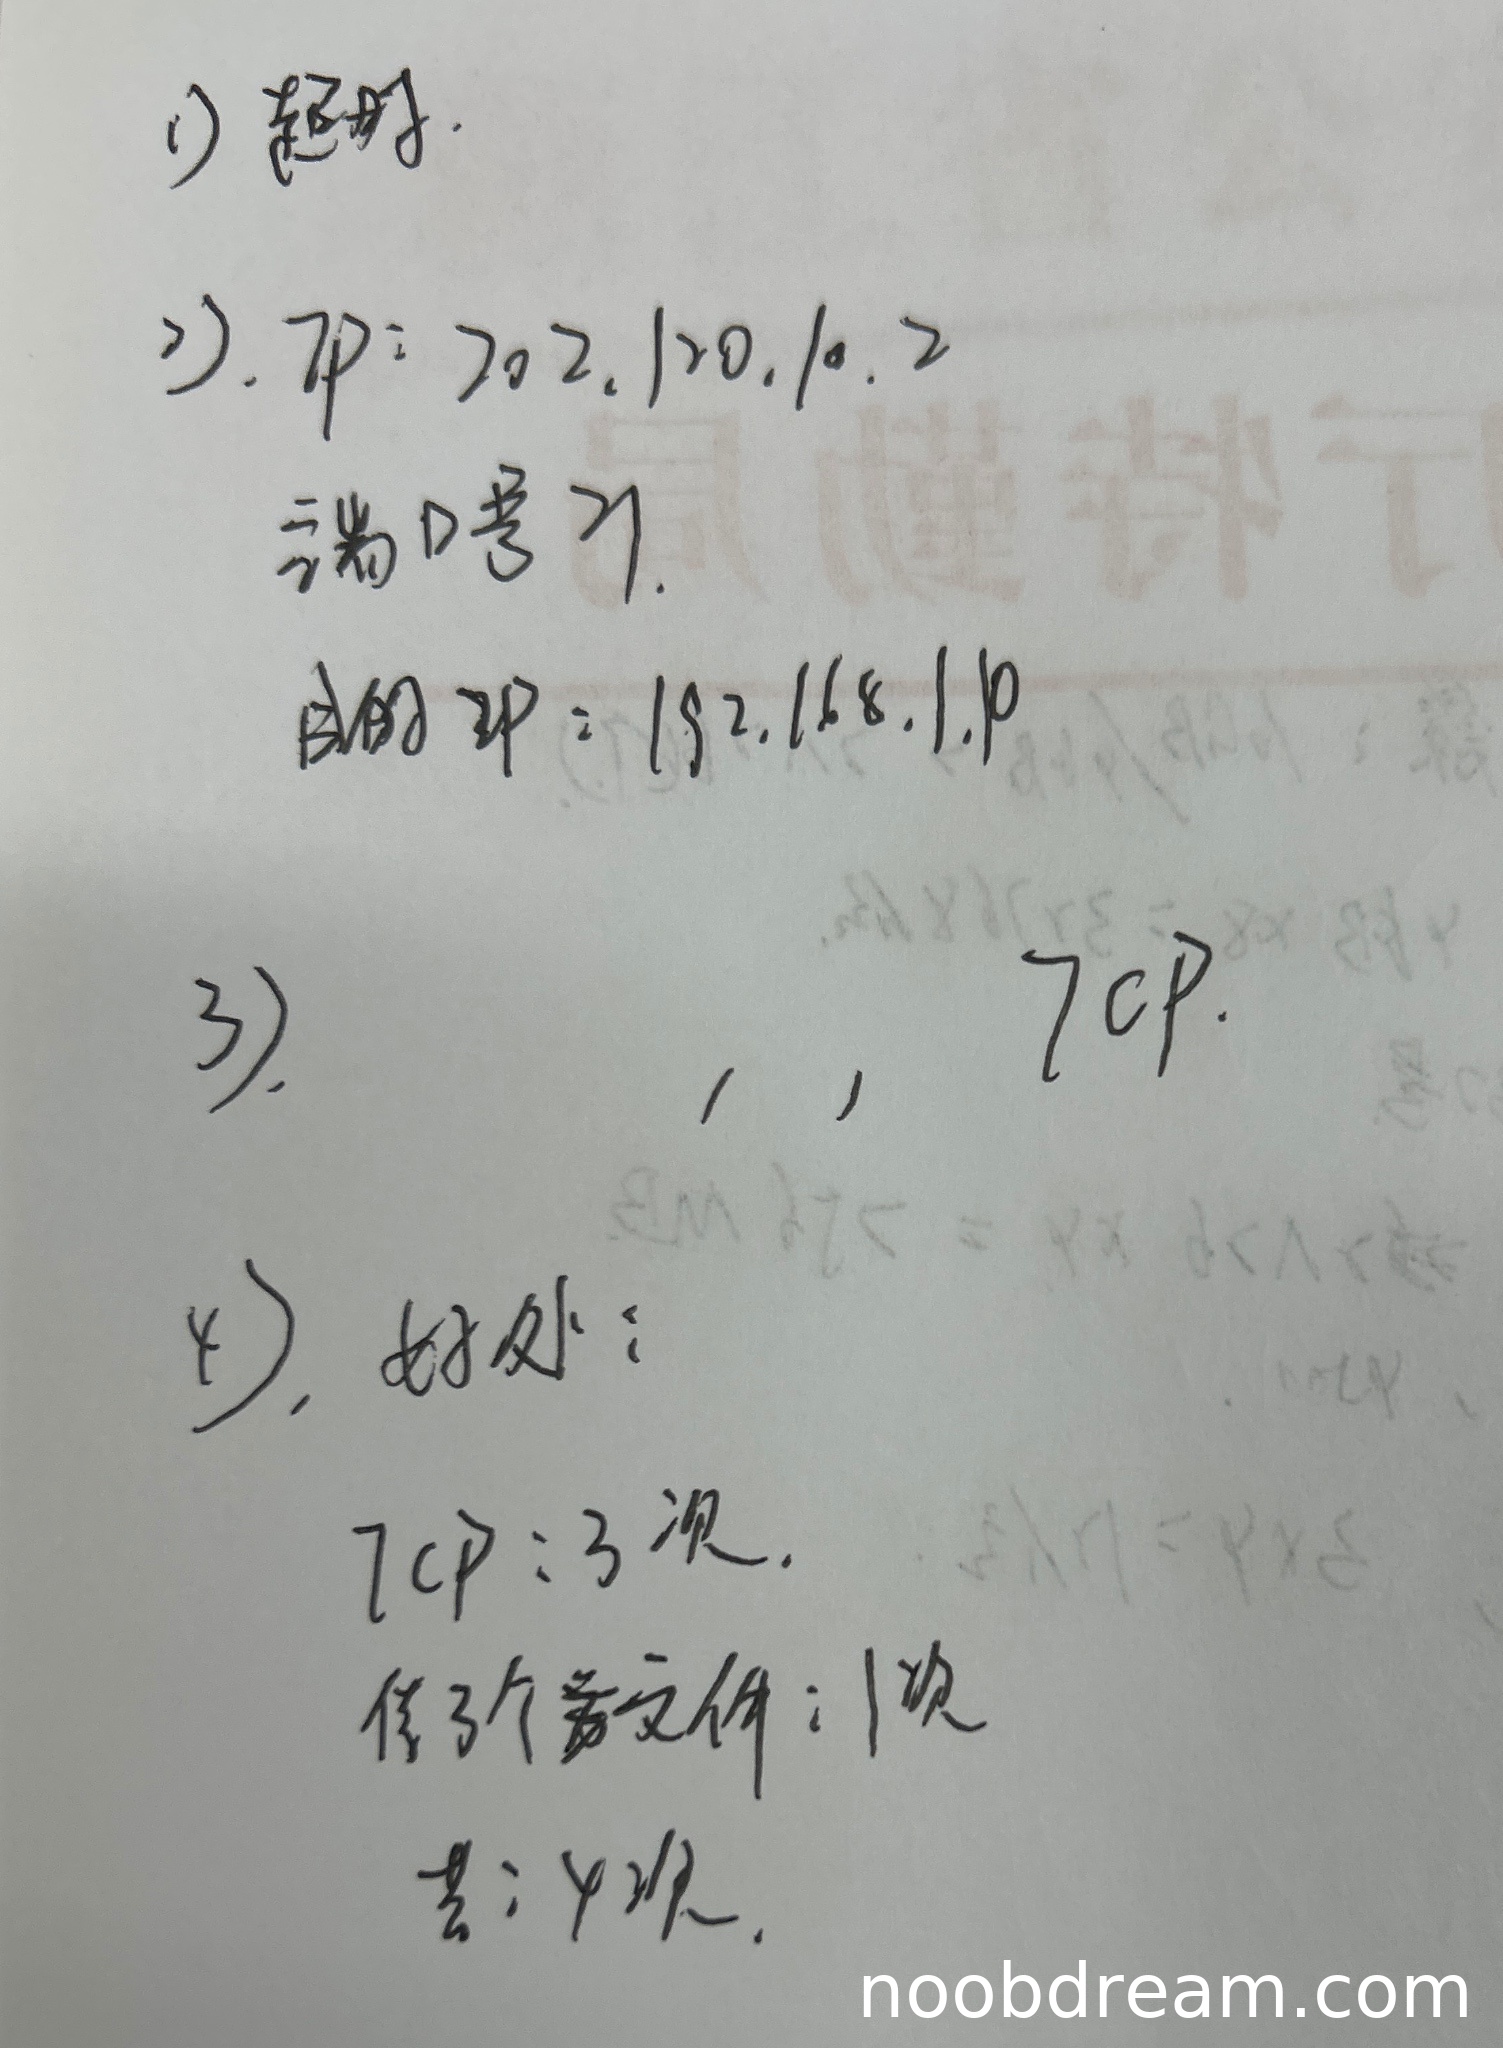 1) 超时.
2). IP: 202.120.10.2
端口号 21.
目的 IP: 192.168.1.10
3). , , TCP.
4). 好处:
TCP: 3次.
传3个文件: 1次
共: 4次.
noobdream.com